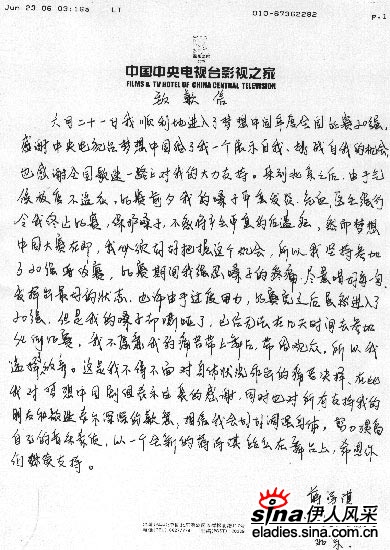 Jun 23 06 03:16a LT 010-67362282 p.1
中国中央电视台影视之家
FILMS & TV HOTEL OF CHINA CENTRAL TELEVISION
致歉信
六月二十一日我顺利地进入了梦想中国年度全国比赛20强,
感谢中央电视台梦想中国给了我一个展示自我、挑战自我的机会
也感谢全国歌迷一路上对我的大力支持。来到北京之后,由于气
候极度不适应,比赛前夕我的嗓子严重发炎,
令我终止比赛,保护嗓子,不然将会有严重的后遗症,然而梦想
中国大赛在即,我必须好好把握这个机会,所以我坚持参加
了20强的比赛,比赛期间我强忍嗓子的疼痛,尽量唱好每一句
发挥出最好的状态,也许由于过度用力,比赛完之后虽然进入了
20强,但是我的嗓子却嘶哑了,已经无法在几天时间去参加
任何比赛,我不愿意我的痛苦带上舞台,带给观众,所以我
选择放弃。这是我不得不面对身体状况作出的痛苦决择,在此
我对梦想中国剧组表示由衷的感谢,同时也对所有支持我的
朋友和歌迷表示深深的歉意,相信我会好好调理身体,努力提高
自己的音乐素质,以一个全新的 站在舞台上,希望你
们继续支持。
sina 伊人风采
eladies.sina.com.cn